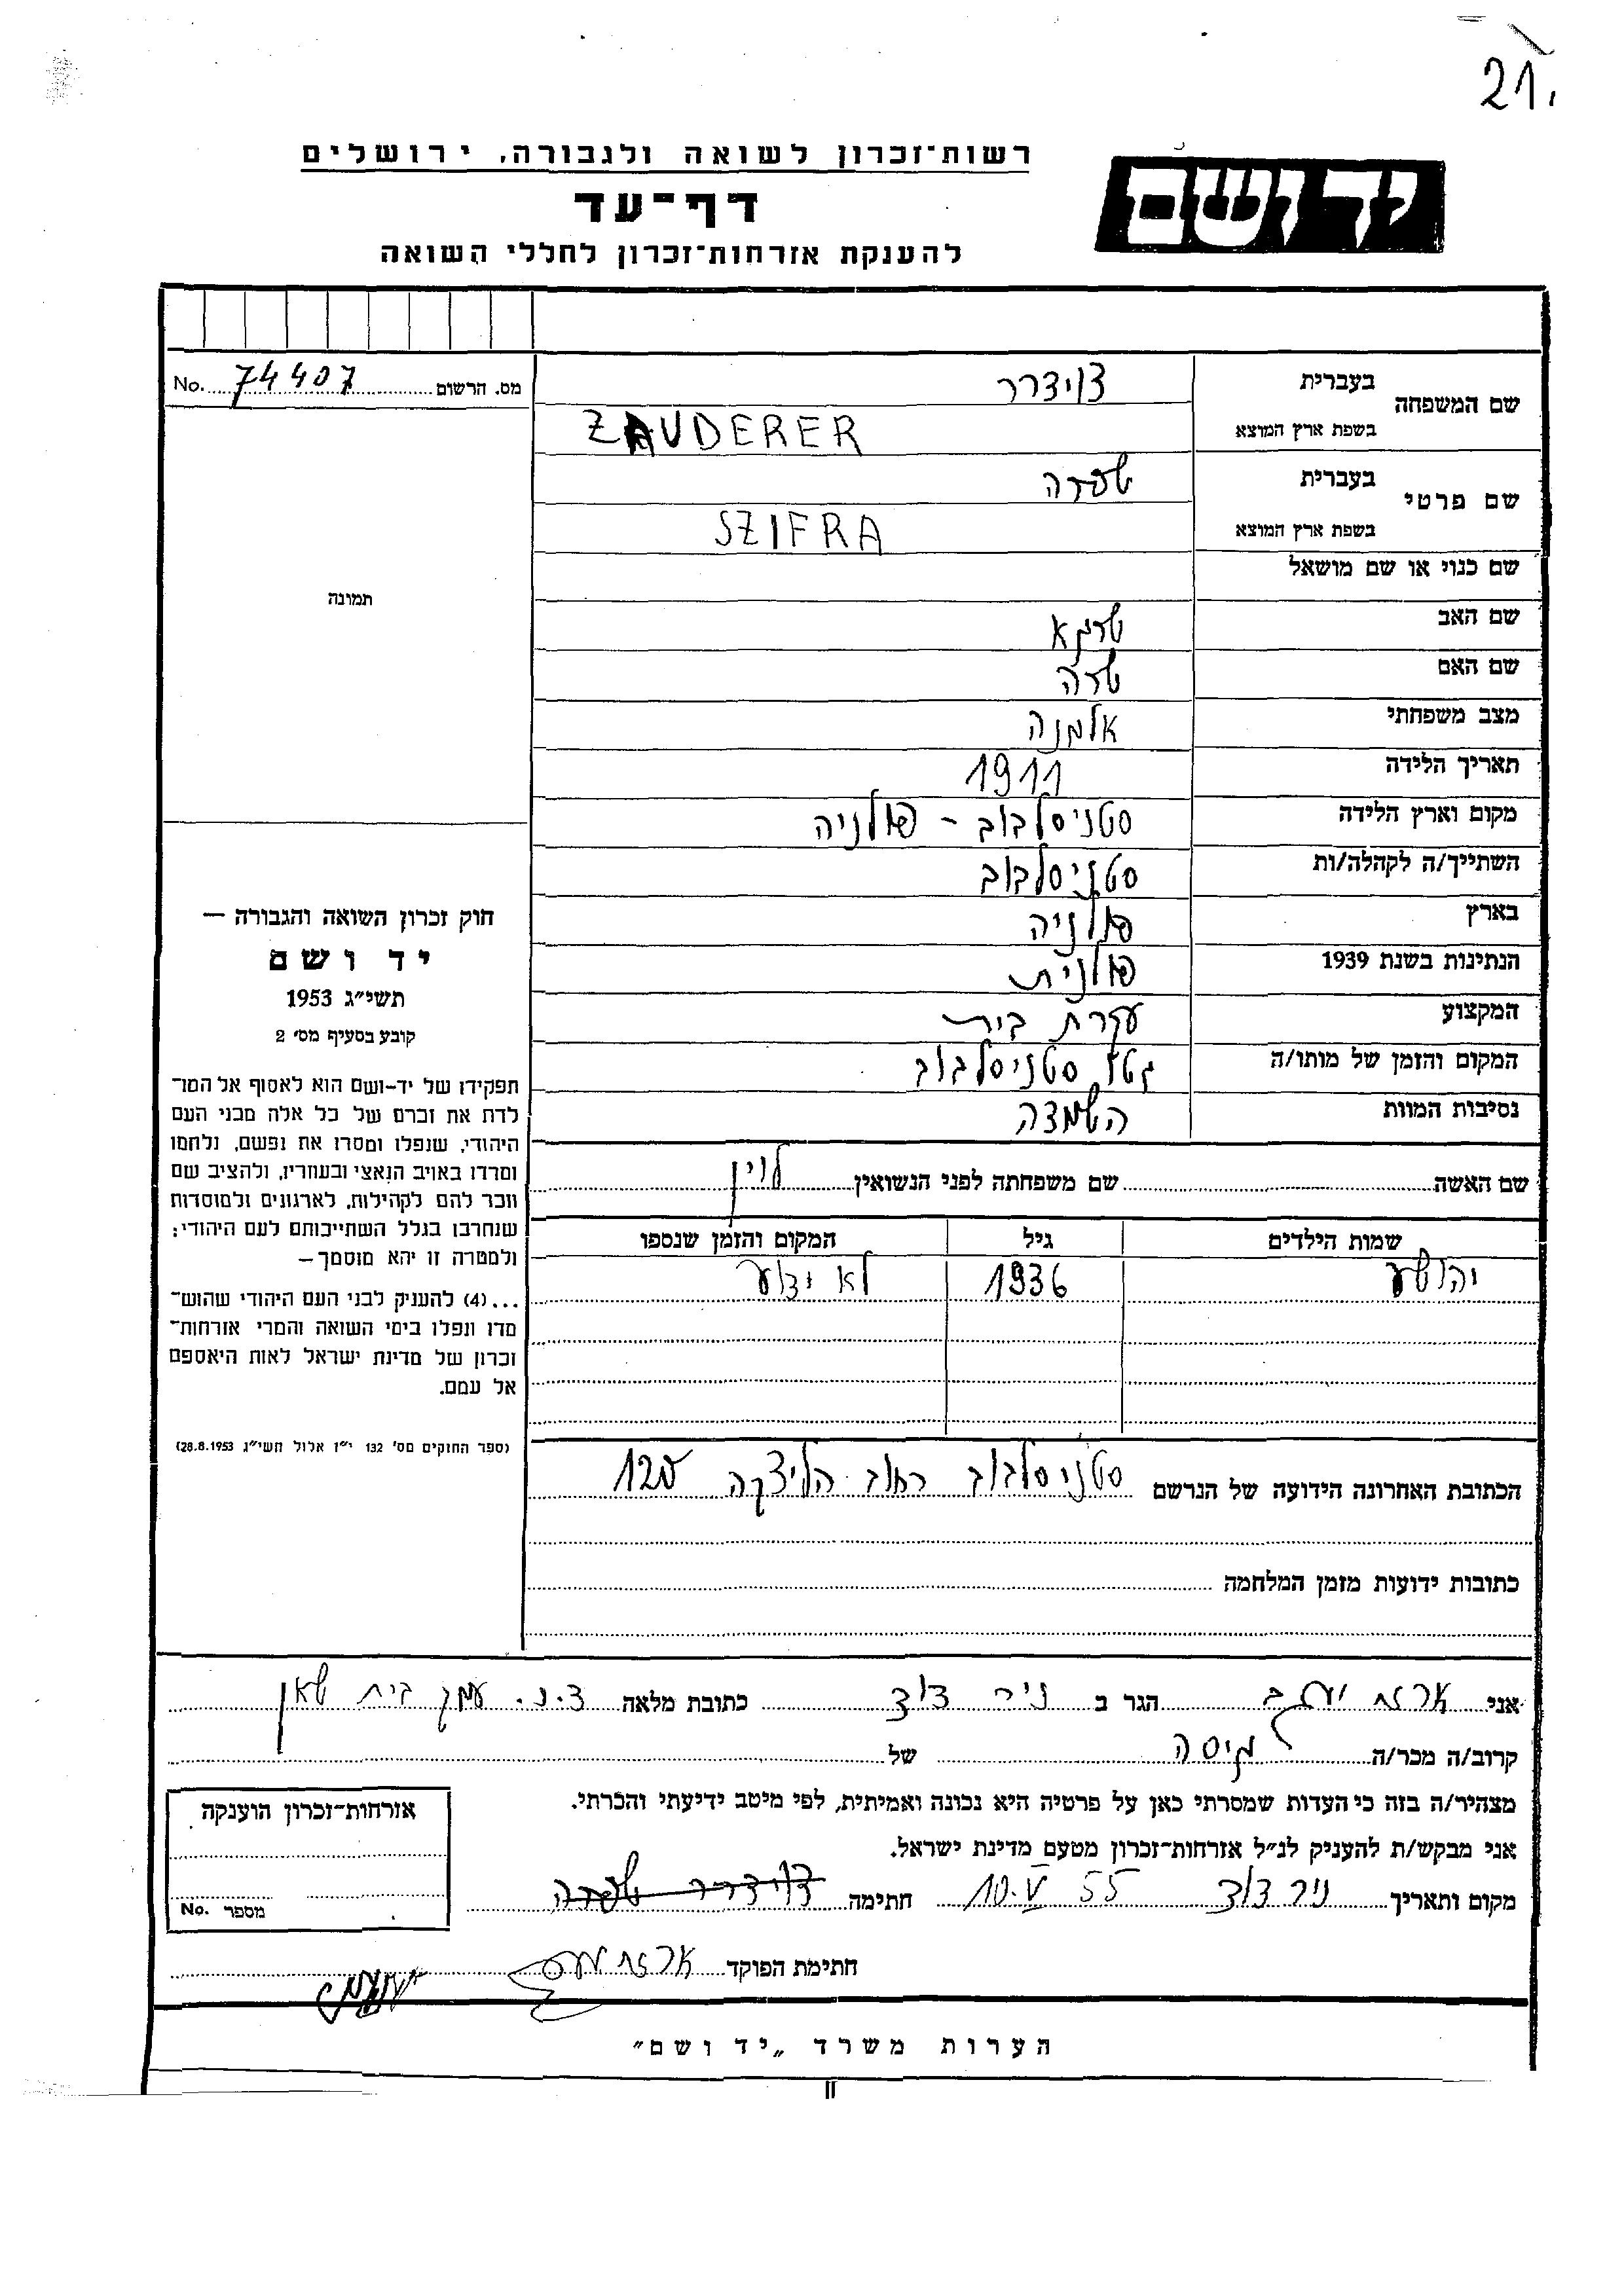 21.
רשות־זכרון לשואה ולגבורה, ירושלים
יד ושם
דף־עד
להענקת אזרחות־זכרון לחללי השואה
מס. הרשום 74407 No.
שם המשפחה בעברית צוידרר
בשפת ארץ המוצא ZAUDERER
שם פרטי בעברית שפרה
בשפת ארץ המוצא SZIFRA
שם כנוי או שם מושאל
תמונה
שם האב שרגא
שם האם שרה
מצב משפחתי אלמנה
תאריך הלידה 1911
מקום וארץ הלידה סטניסלבוב - פולניה
השתייך/ה לקהלה/ות סטניסלבוב
בארץ פולניה
הנתינות בשנת 1939 פולנית
המקצוע עקרת בית
המקום והזמן של מותו/ה גטו סטניסלבוב
נסיבות המוות השמדה
שם האשה שם משפחתה לפני הנשואין לוין
שמות הילדים גיל המקום והזמן שנספו
יהושע 1936 לא ידוע
הכתובת האחרונה הידועה של הנרשם סטניסלבוב רחוב הליצקה 120
כתובות ידועות מזמן המלחמה
חוק זכרון השואה והגבורה —
יד ושם
תשי״ג 1953
קובע בסעיף מס׳ 2
תפקידו של יד-ושם הוא לאסוף אל המו־
לדת את זכרם של כל אלה מבני העם
היהודי, שנפלו ומסרו את נפשם, נלחמו
ומרדו באויב הנאצי ובעוזריו, ולהציב שם
וזכר להם לקהילות, לארגונים ולמוסדות
שנחרבו בגלל השתייכותם לעם היהודי;
ולמטרה זו יהא מוסמך —
...(4) להעניק לבני העם היהודי שהוש־
מדו ונפלו בימי השואה והמרי אזרחות־
זכרון של מדינת ישראל לאות היאספם
אל עמם.
(ספר החוקים מס׳ 132 י״ז אלול תשי״ג 28.8.1953)
אני ארזת יעקב הגר ב ניר דוד כתובת מלאה ד.נ. עמק בית שאן
קרוב/ה מכר/ה גיסה של
מצהיר/ה בזה כי העדות שמסרתי כאן על פרטיה היא נכונה ואמיתית, לפי מיטב ידיעתי והכרתי.
אני מבקש/ת להעניק לנ״ל אזרחות־זכרון מטעם מדינת ישראל.
מקום ותאריך ניר דוד 10.V 55 חתימה צוידרר שפרה
חתימת הפוקד
אזרחות־זכרון הוענקה
מספר No.
הערות משרד „יד ושם״